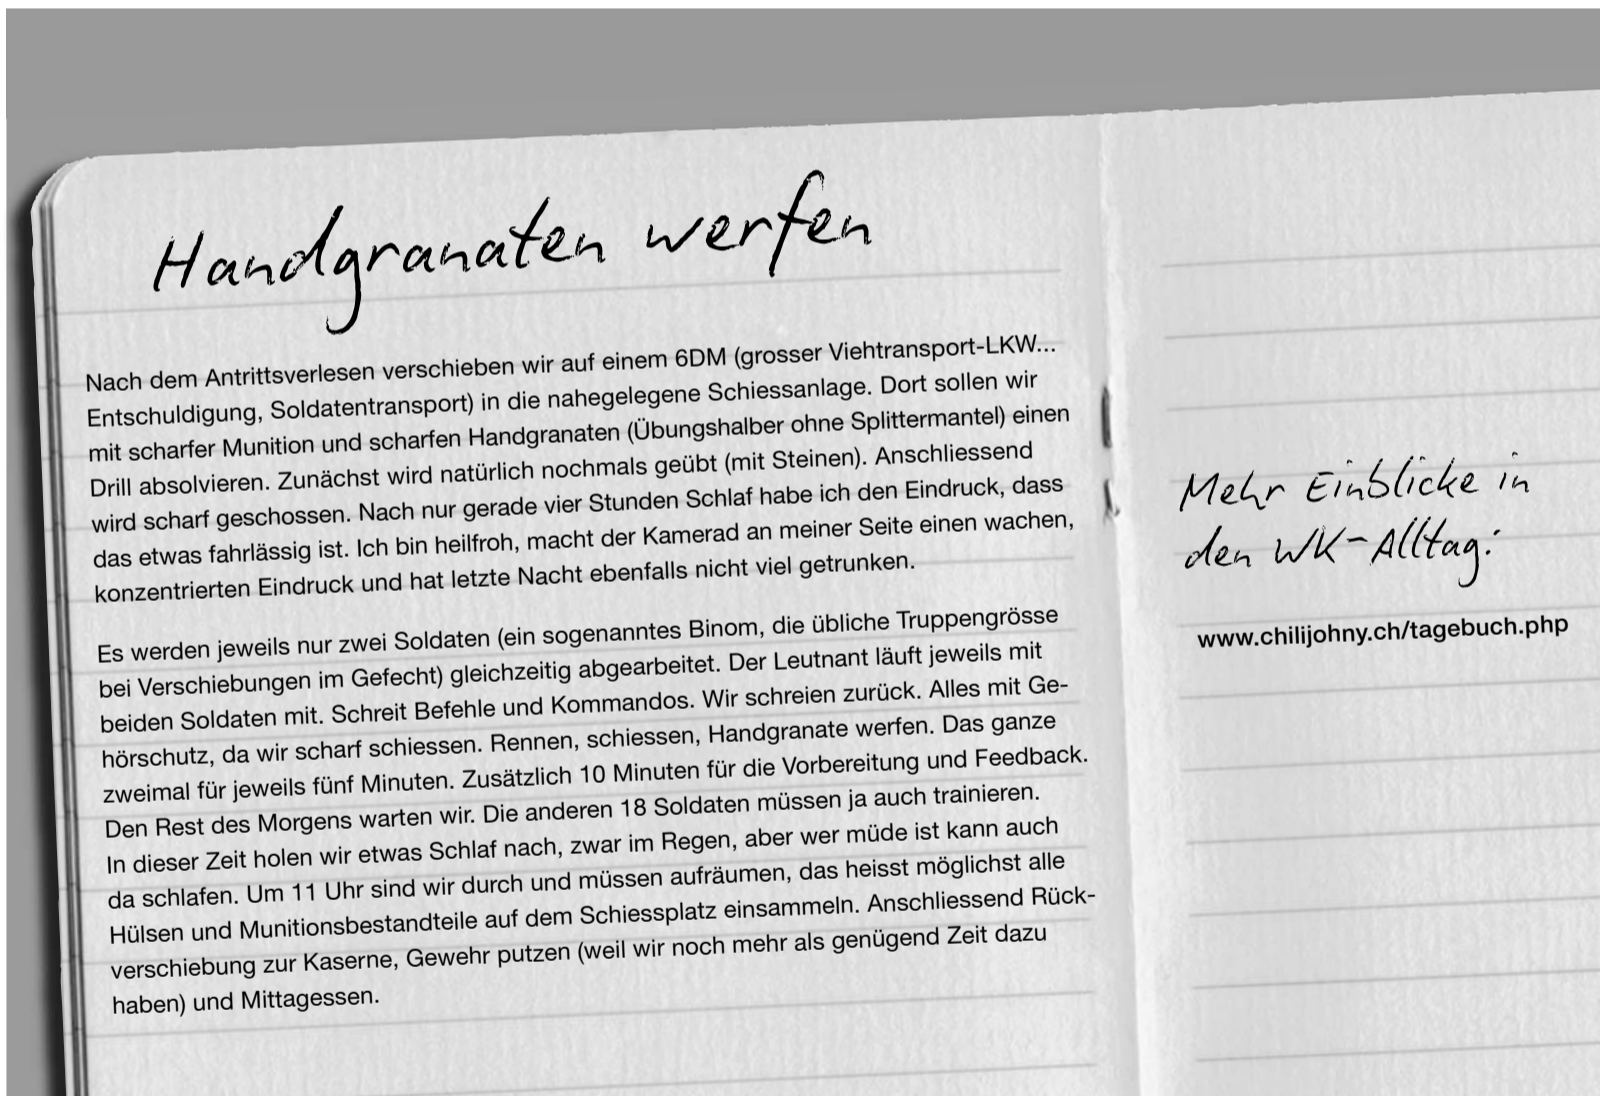 Handgranaten werfen
Nach dem Antrittsverlesen verschieben wir auf einem 6DM (grosser Viehtransport-LKW...
Entschuldigung, Soldatentransport) in die nahegelegene Schiessanlage. Dort sollen wir
mit scharfer Munition und scharfen Handgranaten (Übungshalber ohne Splittermantel) einen
Drill absolvieren. Zunächst wird natürlich nochmals geübt (mit Steinen). Anschliessend
wird scharf geschossen. Nach nur gerade vier Stunden Schlaf habe ich den Eindruck, dass
das etwas fahrlässig ist. Ich bin heilfroh, macht der Kamerad an meiner Seite einen wachen,
konzentrierten Eindruck und hat letzte Nacht ebenfalls nicht viel getrunken.
Es werden jeweils nur zwei Soldaten (ein sogenanntes Binom, die übliche Truppengrösse
bei Verschiebungen im Gefecht) gleichzeitig abgearbeitet. Der Leutnant läuft jeweils mit
beiden Soldaten mit. Schreit Befehle und Kommandos. Wir schreien zurück. Alles mit Ge-
hörschutz, da wir scharf schiessen. Rennen, schiessen, Handgranate werfen. Das ganze
zweimal für jeweils fünf Minuten. Zusätzlich 10 Minuten für die Vorbereitung und Feedback.
Den Rest des Morgens warten wir. Die anderen 18 Soldaten müssen ja auch trainieren.
In dieser Zeit holen wir etwas Schlaf nach, zwar im Regen, aber wer müde ist kann auch
da schlafen. Um 11 Uhr sind wir durch und müssen aufräumen, das heisst möglichst alle
Hülsen und Munitionsbestandteile auf dem Schiessplatz einsammeln. Anschliessend Rück-
verschiebung zur Kaserne, Gewehr putzen (weil wir noch mehr als genügend Zeit dazu
haben) und Mittagessen.
Mehr Einblicke in
den WK-Alltag:
www.chilijohny.ch/tagebuch.php